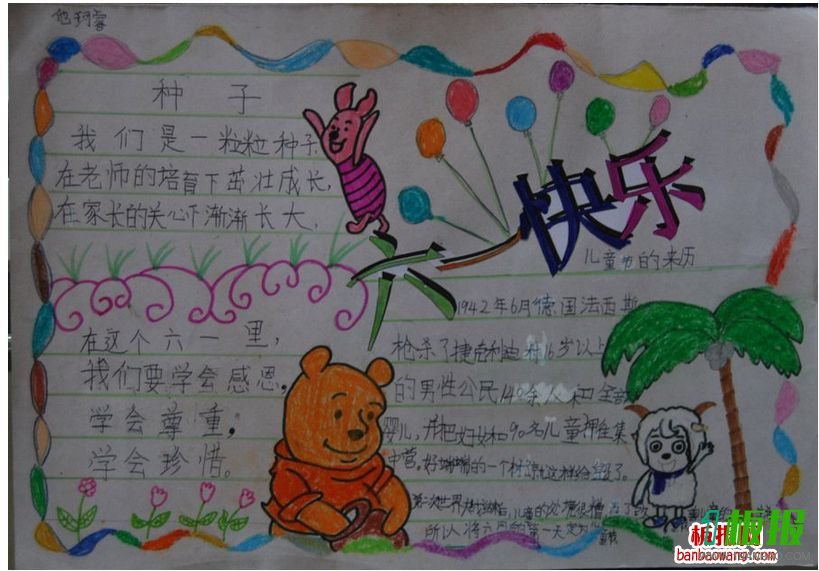 种子
我们是一粒粒种子,
在老师的培育下茁壮成长,
在家长的关心下渐渐长大,
在这个六一里,
我们要学会感恩,
学会尊重,
学会珍惜。
六一快乐
儿童节的来历
1942年6月德国法西斯
枪杀了捷克利迪 16岁以上
的男性公民140余人和全部
婴儿,并把妇女和90名儿童押往集
中营。好端端的一个村 就这样给毁了。
所以将六月的第一天定为儿
童节
板报
板报网
banbaowang.com